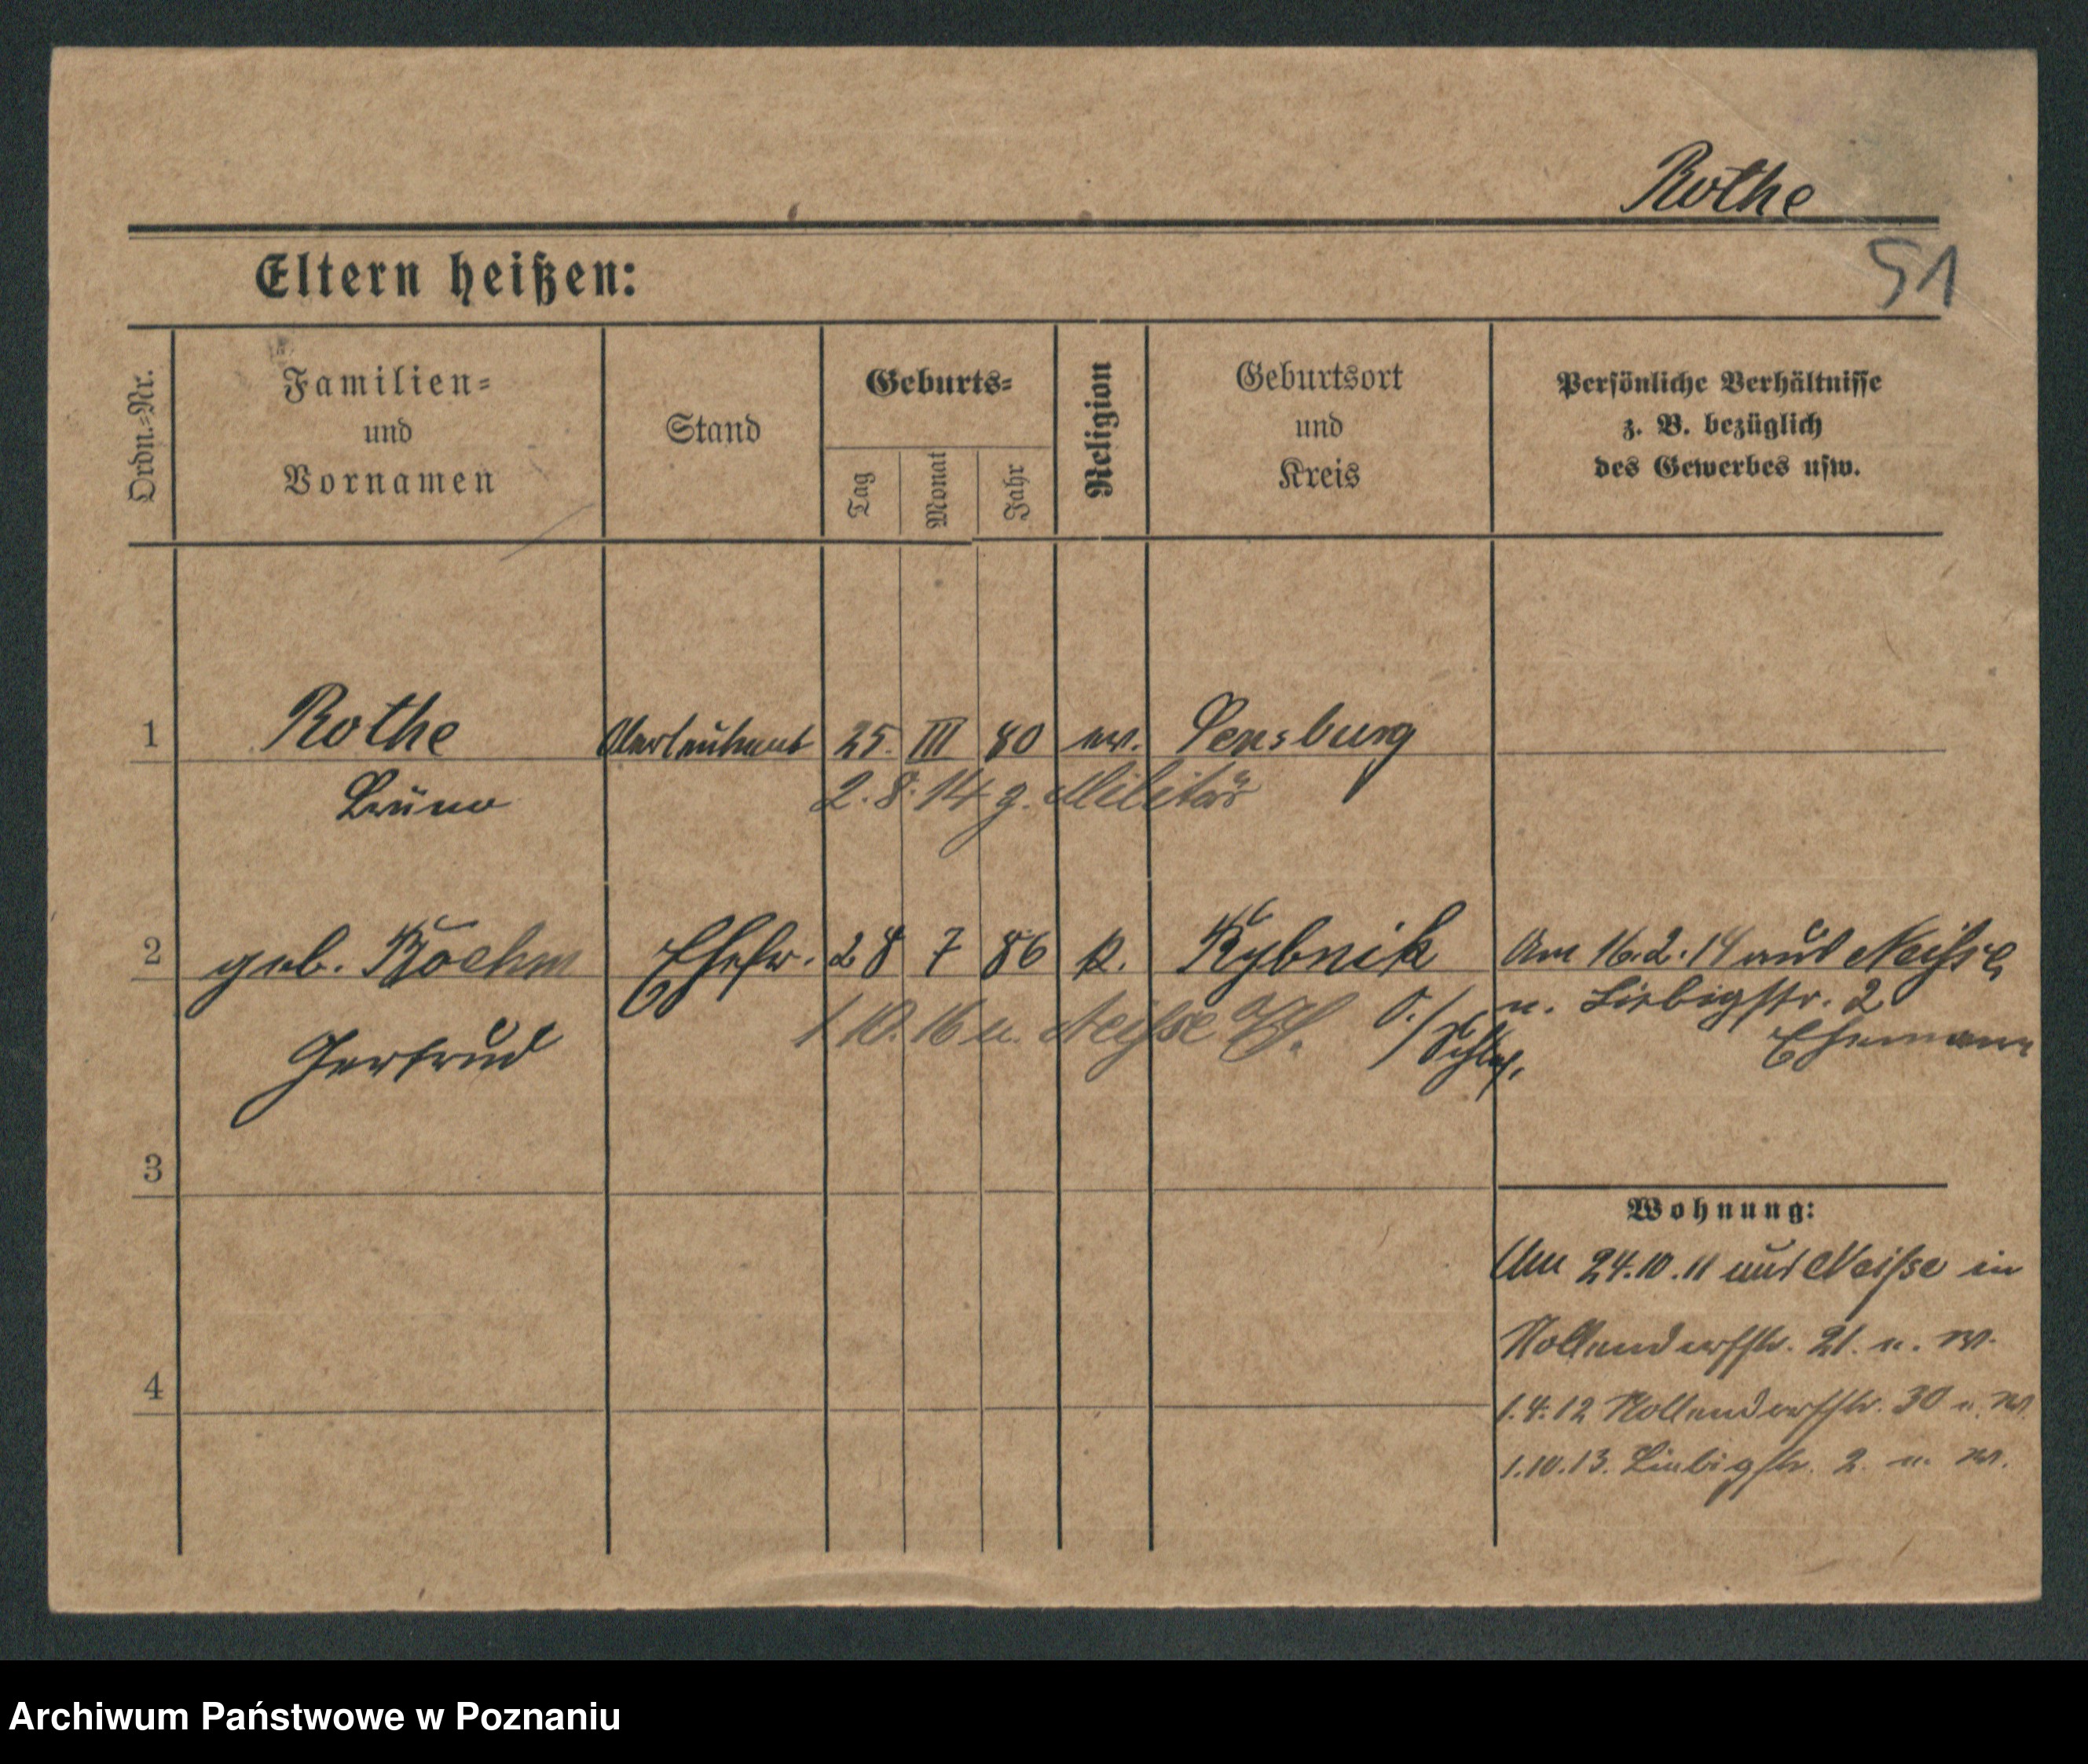 Rothe
51
Eltern heißen:
Ordn.=Nr.
Familien=
und
Vornamen
Stand
Geburts=
Tag
Monat
Jahr
Religion
Geburtsort
und
Kreis
Persönliche Verhältnisse
z. B. bezüglich
des Gewerbes usw.
1 Rothe Oberleutnant 25. III 80 ev. Sensburg
Bruno 2.8.14 z. Militär
2 geb. Boehm Ehefr. 28 7 86 k. Rybnik Am 16.2.14 aus Neisse
n. Liebigstr. 2
Ehemann
Gertrud 1.10.16 n. Neisse O./Schles.
3
4
Wohnung:
Am 24.10.11 aus Neisse in
Nollendorfstr. 21. n. W.
1.4.12 Nollendorfstr. 30 n. W.
1.10.13. Liebigstr. 2 n. W.
Archiwum Państwowe w Poznaniu